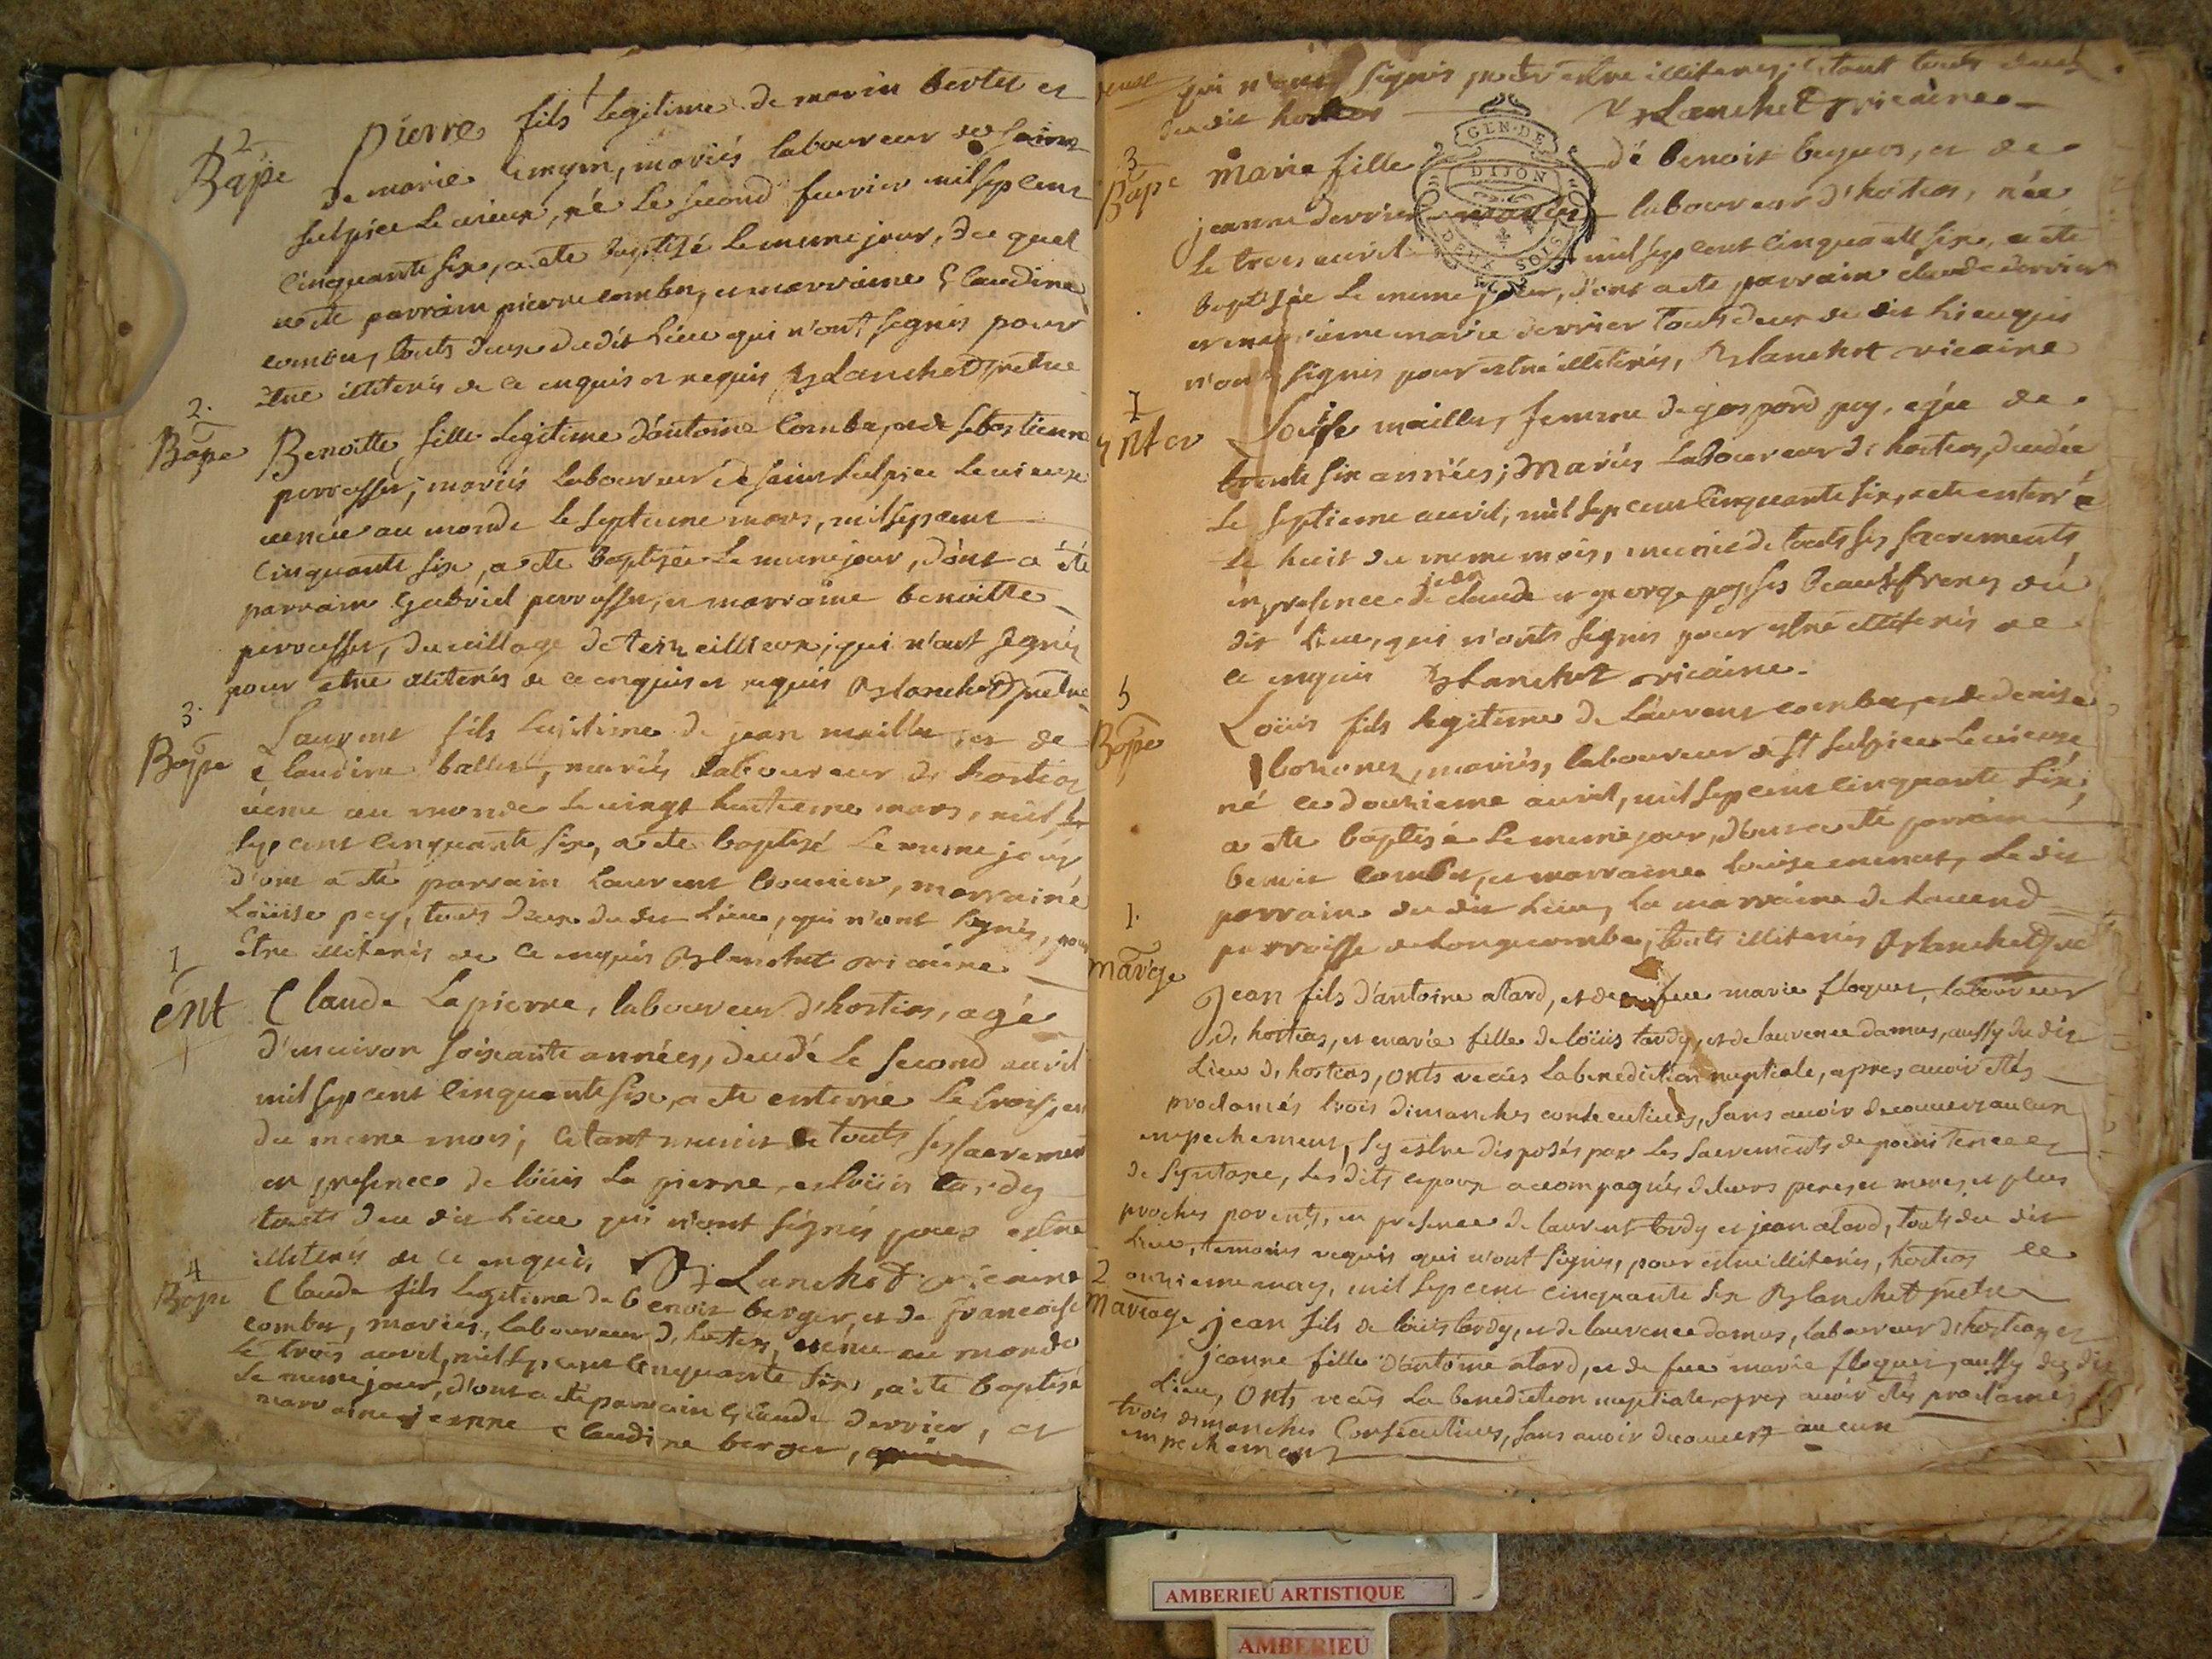 2
Bape
Pierre fils legitime de marin bertet et
de marie mariés laboureur de saint
sulpice le vieux, né le second fevrier mil sept cent
cinquante six, a ete baptisé le meme jour, du quel
a ete parrain pierre combet, et marraine Claudine
combet, touts deux dudit lieu qui n'ont signés pour
être illiterés de ce enquis et requis Blanchet prêtre
2.
Bape
Benoitte fille legitime d'antoine Combet, et de sebastienne
perrosset, mariés laboureur de saint sulpice le vieux
venue au monde le septieme mars, mil sept cent
cinquante six, a ete baptisée le meme jour, d'ont a été
parrain gabriel perrosset, et marraine benoitte
perrosset, du village de qui n'ont signés
pour etre illiterés de ce enquis et requis Blanchet prêtre
3.
Bape
Laurent fils legitime de jean maillet et de
claudine ballet, mariés laboureur d'hostias
venu au monde le vingt huitieme mars, mil
sept cent cinquante six, a ete baptisé le meme jour
d'ont a été parrain laurent marrainé
Loüise pey, touts deux du dit lieu, qui n'ont signés, pour
être illiterés de ce enquis Blanchet vicaire
1
ént
Claude Lapierre, laboureur d'hostias, agé
d'environ soixante années, decedé le second avril
mil sept cent cinquante six, a ete enterré le troisieme
du meme mois; etant munit de touts ses sacrement
en presence de loüis la pierre, et loüis tardy
touts deu dit lieu qui n'ont signés pour estre
illiterés de ce enquis Blanchet vicaire
4
Bape
Claude fils legitime de benoit berger, et de francoise
combet, mariés, laboureur d'hostias, venu au monde
le trois avril, mil sept cent cinquante six, a été baptisé
le meme jour, d'ont a été parrain claude derrier, et
marraine jeanne claudine berger,
qui n'ont signés pour estre illiterés, etant touts deux
du dit hostias Blanchet vicaire
3
Bape
Marie fille de benoit et de
jeanne derrier mariés laboureur d'hostias, née
le trois avril mil sept cent cinquante six, a été
baptisée le meme jour, d'ont a ete parrain claude derrier
et marraine marie derrier touts deux du dit lieu qui
n'ont signés pour estre illiterés, Blanchet vicaire
1
enter
Loüise maillet, femme de gaspard pey, agée de
trente six années; mariés laboureur d'hostias, decedée
le septieme avril, mil sept cent cinquante six, a ete enterré
le huit du meme mois, munie de touts ses sacrements
en presence de jean claude et george pey ses beaux freres du
dit lieu, qui n'onts signés pour estre illiterés de
ce enquis Blanchet vicaire.
5
Bape
Loüis fils legitime de laurent combet, et de denise
mariés, laboureur de st sulpice le vieux
né le douzieme avril, mil sept cent cinquante six,
a ete baptisé le meme jour, d'ont a été parrain
benoit combet, et marraine loüise le dit
parrain du dit lieu, la marraine de
parroisse de longecombe, touts illiterés Blanchet
1.
mariage
Jean fils d'antoine alard, et de feue marie floquet, laboureur
d'hostias, et marie fille de loüis tardy, et de laurence damas, aussy du dit
lieu d'hostias, onts recûs la benediction nuptiale, apres avoir étés
proclamés trois dimanches consecutives, sans avoir decouvert aucun
empechement, s'y estre disposés par les sacrements de pœnitence et
de Syntaxe, les dits epoux accompagnés de leurs peres et meres, et plus
proches parents, en presence de laurent tardy et jean alard, touts du dit
lieu, temoins requis qui n'ont signés, pour estre illiterés, hostias le
onzieme may, mil sept cent cinquante six Blanchet pretre
2
Mariage
jean fils de loüis tardy, et de laurence damas, laboureur d'hostias, et
jeanne fille d'antoine alard, et de feue marie floquet, aussy du dit
lieu, Onts recûs la benediction nuptiale, apres avoir étés proclamés
trois dimanches Consecutives, sans avoir decouvert aucun
empechement
GEN · DE
DIJON
DEUX SOLS
AMBERIEU ARTISTIQUE
AMBERIEU